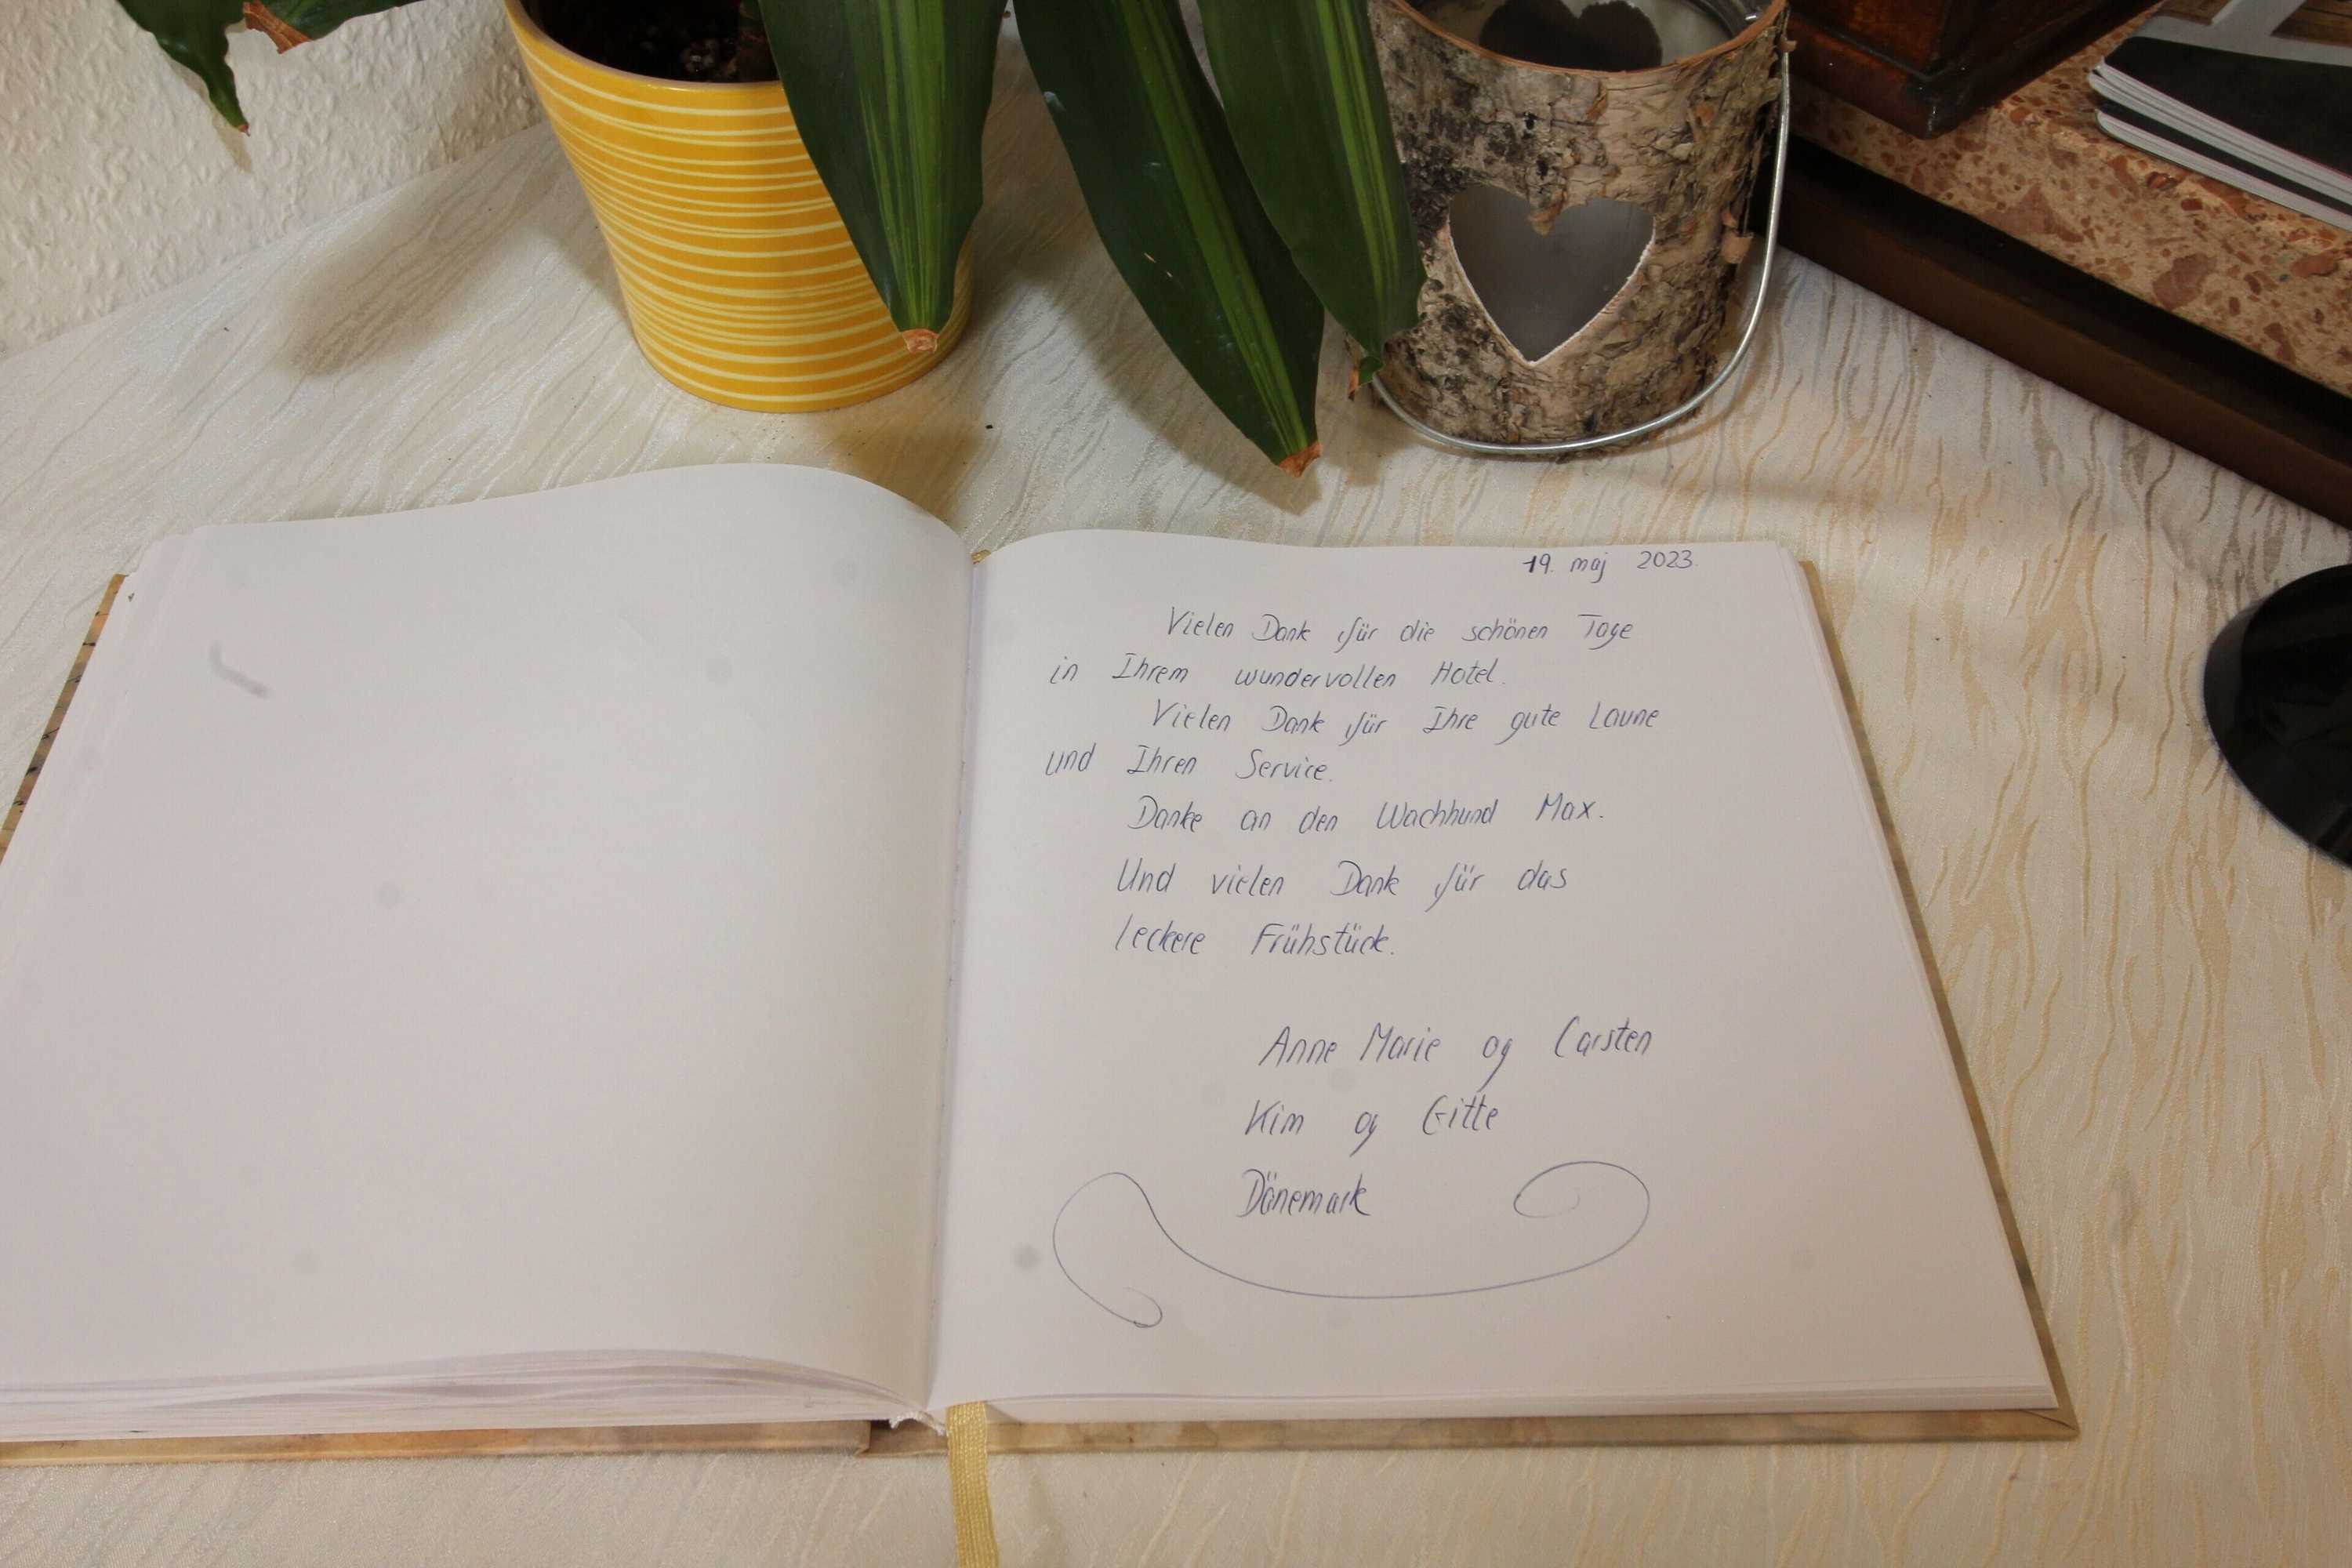 19. maj 2023.
Vielen Dank für die schönen Tage
in Ihrem wundervollen Hotel.
Vielen Dank für Ihre gute Laune
und Ihren Service.
Danke an den Wachhund Max.
Und vielen Dank für das
leckere Frühstück.
Anne Marie og Carsten
Kim og Gitte
Dänemark